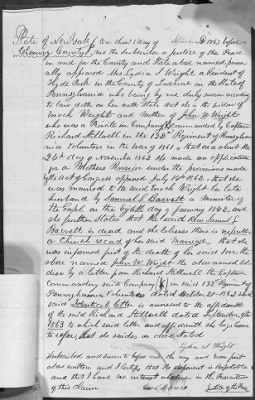 State of New York } On this 1 day of 1863 before
Chemung County } me the Subscriber a justice of the Peace
in and for the County and State above named person-
ally appeared Mrs Lydia S Wright a resident of
Hyde Park in the County of Luzerne in the State of
Pennsylvania who being by me duly sworn according
to law doth on her oath State that she is the widow of
Enoch Wright and Mother of John W Wright
who was a Private in Company K commanded by Captain
Richard Stillwell in the 132 Regiment of Pennsylva-
nia Volunteers in the war of 1861 that on or about the
26th day of November 1862 she made an application
for a Mothers Pension under the provisions made
by the Act of Congress approved July 14th 1862 that she
was married to the said Enoch Wright her late
husband by Samuel S Barrett a Minister of
the Gospel on the Eighth day of January 1842 and
she further States that the said Rev Samuel S
Barrett is dead and she believes there is
a Church record of her said Marriage that she
was informed first of the death of her said Son the
above named John W Wright the above named Sol-
dier by a letter from Richard Stillwell the Captain
Commanding said Company (K) in said 132 Regiment of
Pennsylvania Volunteers dated
said is annexed to the affidavit
of the said Richard Stillwell dated September 9th
1863 to which said letter and affidavit she begs leave
to refer, that she resides as above stated
Lydia S Wright
Subscribed and sworn to before me the day and year first
above written and I certify that the deponent is respectable
and that I have no interest whatever in the Prosecution
of this claim Justice of the Peace